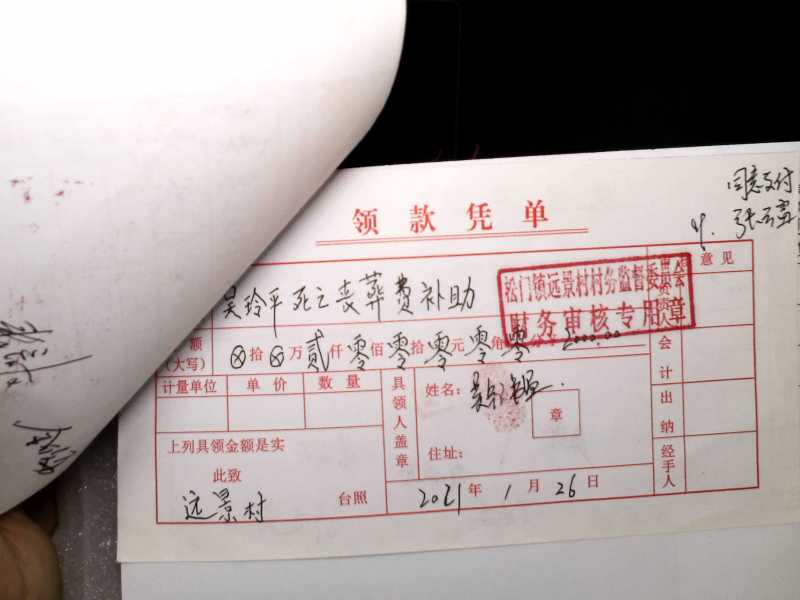 同意支付
领款凭单
吴玲平死亡丧葬费补助
松门镇远景村村务监督委员会
财务审核专用章
意见
额
(大写)
⊗拾⊗万贰仟零佰零拾零元零角零分
2000.00
会计
计量单位 单价 数量
具领人盖章
姓名:
章
出纳
上列具领金额是实
住址:
此致
经手人
远景村 台照
2021年1月26日